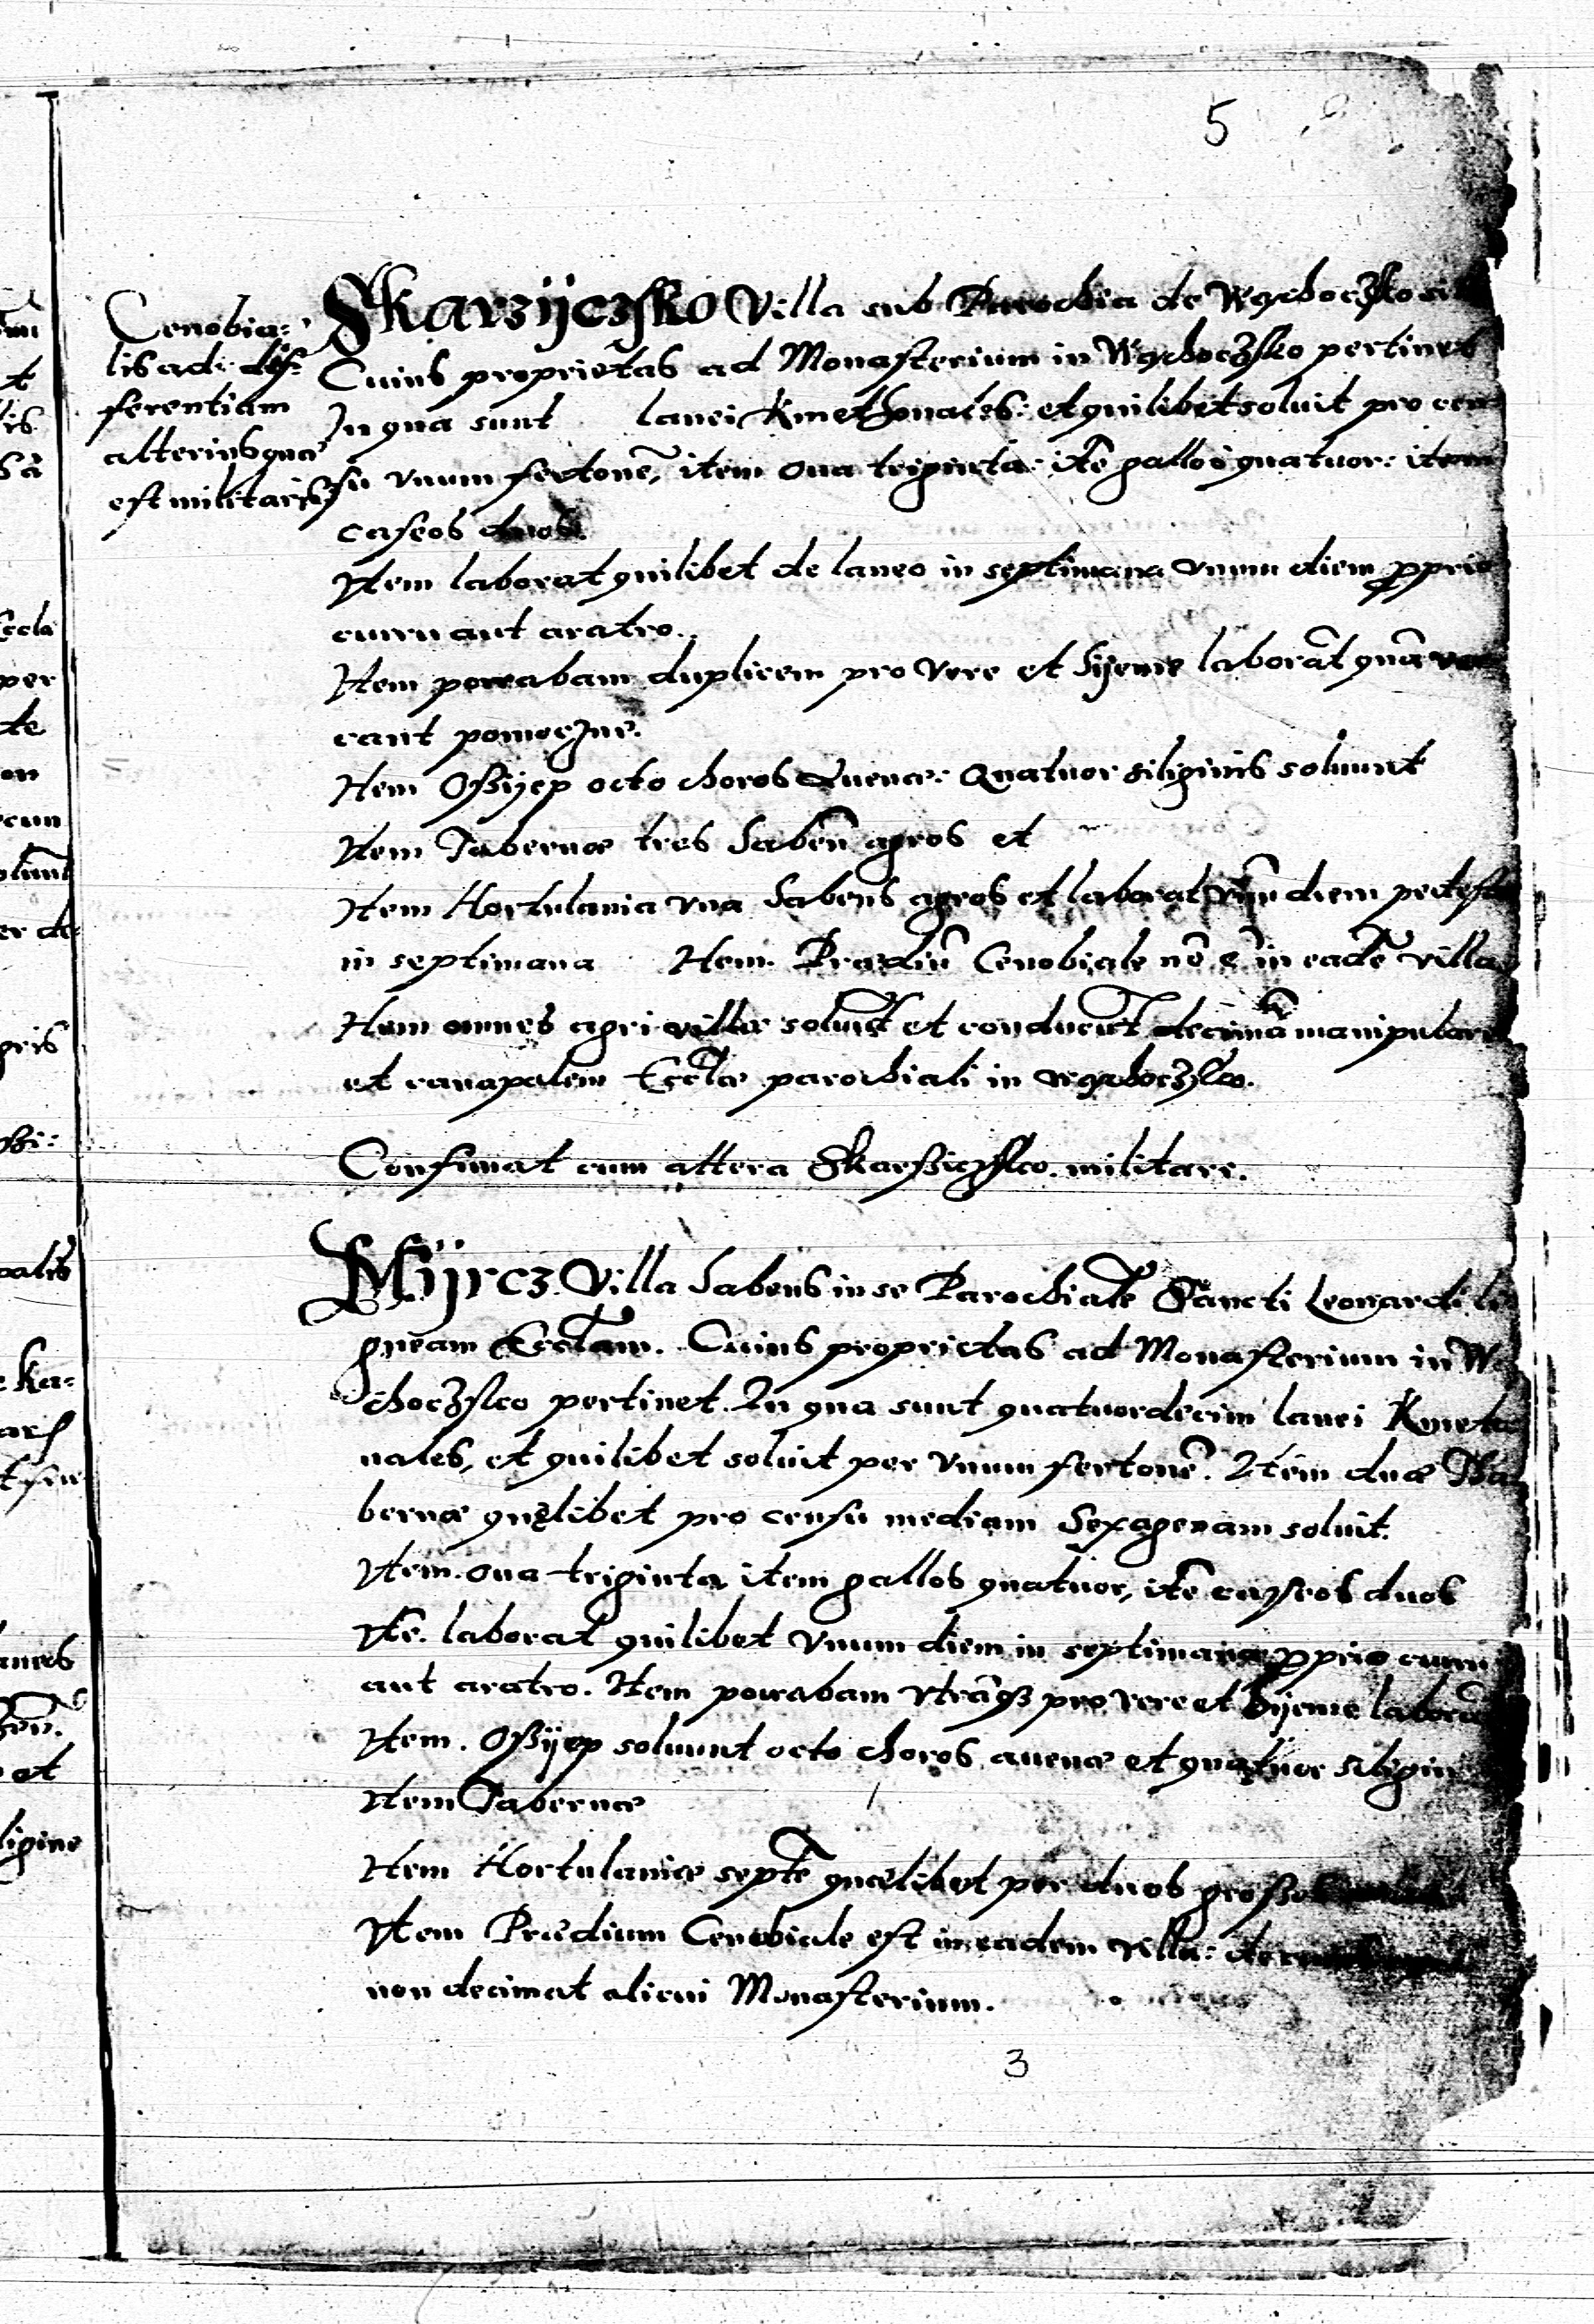 5
Cenobia:
lis ad: dif:
ferentiam
alterius quæ
est militaris
Skarzijczsko Villa sub Parochia de Wąchoczsko
Cuius proprietas ad Monasterium in Wąchoczsko pertinet
In qua sunt lanei Kmethonales: et quilibet soluit pro cen
su vnum fertonē, item oua triginta: itē gallos quatuor: item
caseos duos.
Item laborat quilibet de laneo in septimana vnum diem ꝓprio
curru aut aratro.
Item powabam duplicem pro vere et hijeme laborāt quā vo
cant pomoczne.
Item Ossijep octo choros Auenæ: Quatuor siliginis soluunt
Item Tabernæ tres habēn agros et
Item Hortulania vna habens agros et laborat vnū diem pedest
in septimana Item Prædiū Cenobiale nō ē in eadē villa
Item omnes agri villæ soluūt et conducūt decimā manipularē
et canapalem Eccłæ parochiali in Wąchoczsko.
Confinat cum altera Skarssiczsko militare.
Mijrcz Villa habens in se Parochialē Sancti Leonardi li
gneam Eccłam. Cuius proprietas ad Monasterium in Wą
choczsko pertinet. In qua sunt quatuordecim lanei Kmeto
nales, et quilibet soluit per vnum fertonē. Item duæ Ta
bernæ quęlibet pro censu mediam Sexagenam soluit.
Item oua triginta item gallos quatuor, itē caseos duos
Itē laborat quilibet vnum diem in septimana ꝓprio curru
aut aratro. Item powabam vtrāqȝ pro vere et hijeme laborā
Item. Ossijep soluunt octo choros auenæ et quatuor siligin
Item Tabernæ
Item Hortulaniæ septē quælibet per duos grossos
Item Prædium Cenobiale est in eadem villa:
non decimat alicui Monasterium.
3